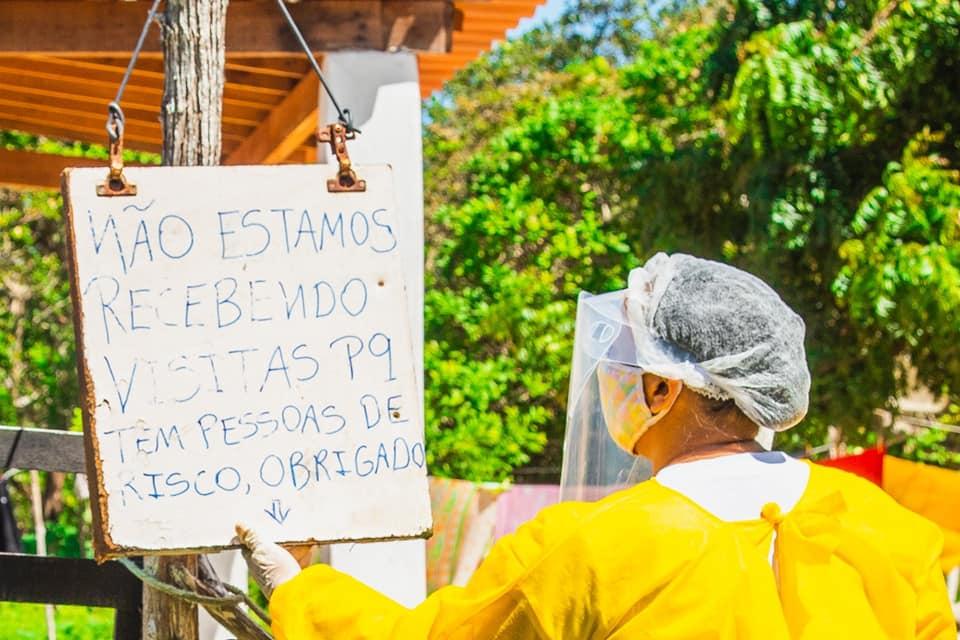 NÃO ESTAMOS
RECEBENDO
VISITAS PQ
TEM PESSOAS DE
RISCO, OBRIGADO